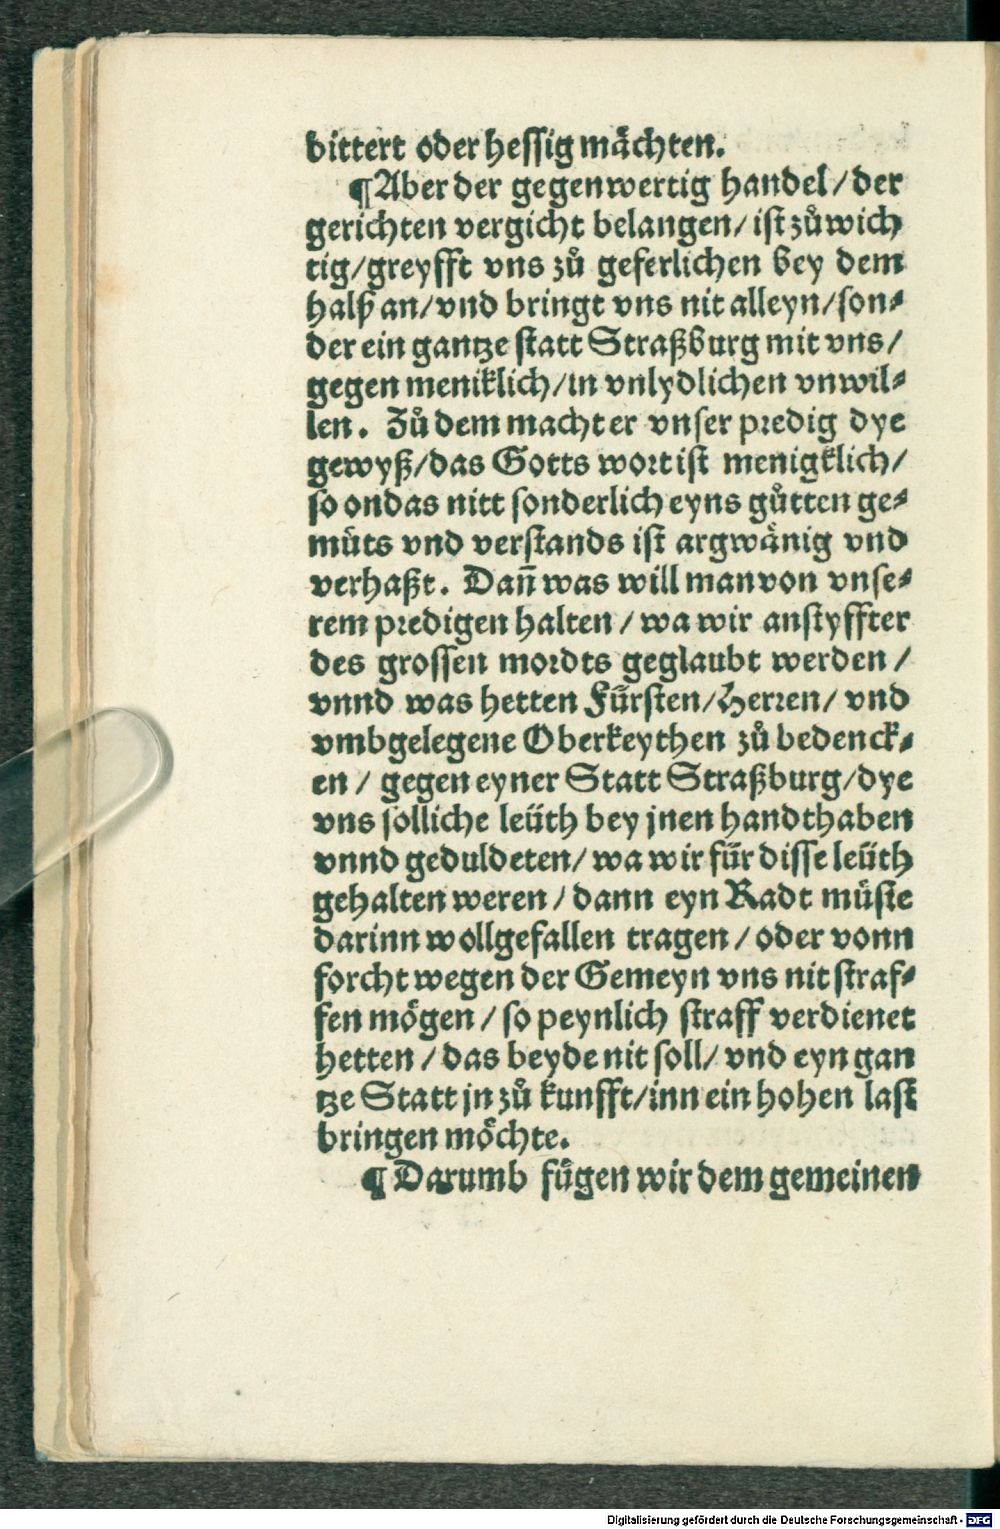 bittert oder hessig mächten.
¶ Aber der gegenwertig handel / der
gerichten vergicht belangen / ist zůwich
tig / greyfft vns zů geferlichen bey dem
halß an / vnd bringt vns nit alleyn / son⸗
der ein gantze statt Straßburg mit vns /
gegen meniklich / in vnlydlichen vnwil⸗
len. Zů dem macht er vnser predig dye
gewyß / das Gotts wort ist menigklich /
so on das nitt sonderlich eyns gůtten ge⸗
müts vnd verstands ist argwänig vnd
verhaßt. Dañ was will man von vnse⸗
rem predigen halten / wa wir anstyffter
des grossen mordts geglaubt werden /
vnnd was hetten Fürsten / Herren / vnd
vmbgelegene Oberkeythen zů bedenck⸗
en / gegen eyner Statt Straßburg / dye
vns solliche leüth bey jnen handthaben
vnnd geduldeten / wa wir für disse leüth
gehalten weren / dann eyn Radt müste
darinn wollgefallen tragen / oder vonn
forcht wegen der Gemeyn vns nit straf⸗
fen mögen / so peynlich straff verdienet
hetten / das beyde nit soll / vnd eyn gan
tze Statt jn zů kunfft / inn ein hohen last
bringen möchte.
¶ Darumb fügen wir dem gemeinen
Digitalisierung gefördert durch die Deutsche Forschungsgemeinschaft - DFG